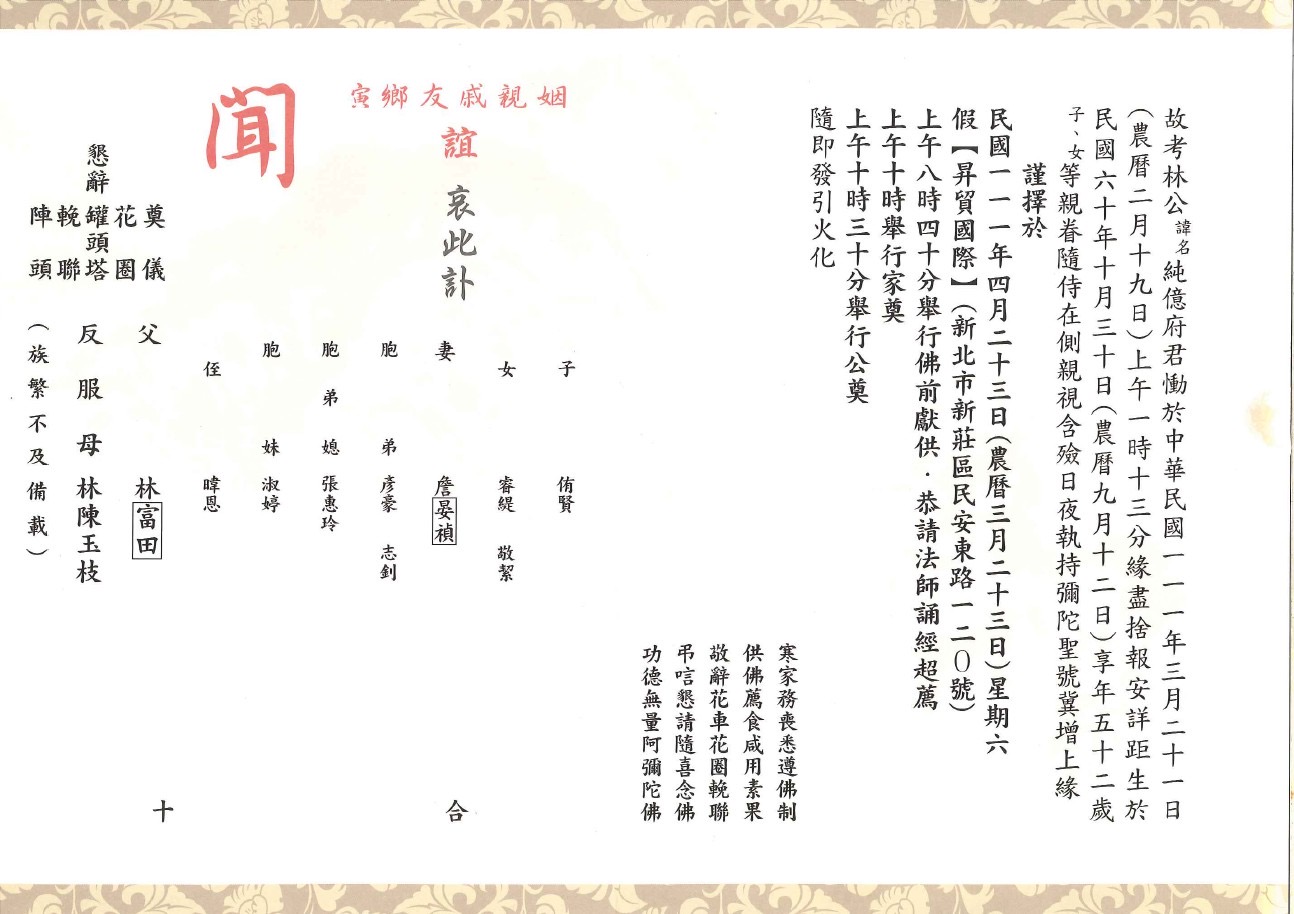 故考林公諱名純億府君慟於中華民國一一一年三月二十一日
(農曆二月十九日)上午一時十三分緣盡捨報安詳距生於
民國六十年十月三十日(農曆九月十二日)享年五十二歲
子、女等親眷隨侍在側親視含殮日夜執持彌陀聖號冀增上緣
謹擇於
民國一一一年四月二十三日(農曆三月二十三日)星期六
假【昇貿國際】(新北市新莊區民安東路一二0號)
上午八時四十分舉行佛前獻供．恭請法師誦經超薦
上午十時舉行家奠
上午十時三十分舉行公奠
隨即發引火化
寒家務喪悉遵佛制
供佛薦食咸用素果
敬辭花車花圈輓聯
弔唁懇請隨喜念佛
功德無量阿彌陀佛
姻親戚友鄉寅
誼 哀此訃
聞
子 侑賢
女 睿緹 敬絜
妻 詹晏禎
胞弟 彥豪 志釗
胞弟媳 張惠玲
胞妹 淑婷
侄 暐恩
父 林富田
反服母 林陳玉枝
(族繁不及備載)
懇辭
奠儀
花圈
罐頭塔
輓聯
陣頭
合
十